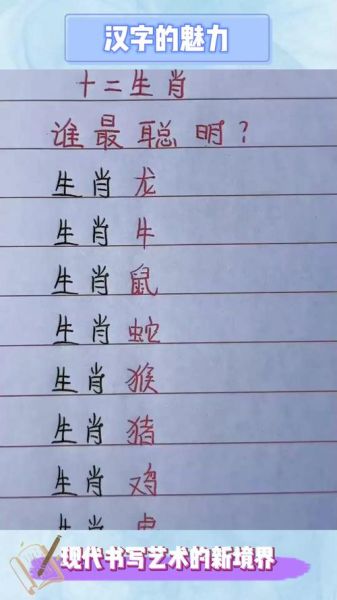 汉字的魅力
十二生肖
谁最聪明？
生肖龙
生肖牛
生肖鼠
生肖蛇
生肖猴
生肖猪
生肖鸡
生肖虎
现代书写艺术的新境界